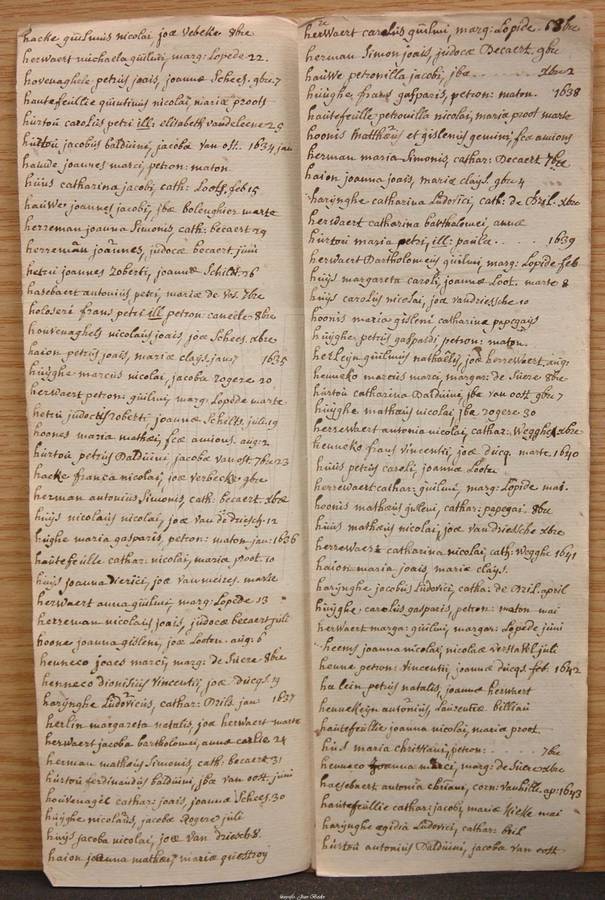 hacke guilmus nicolai, joæ Vebeke 8bre
herwaert michaela guilmi, marg: Lopede 22.
hovenaghele petrus joais, joannæ Schees. 9bre.7
hautefeuillie quintinus nicolai, maria proots
hurtou carolus petri ill: elisabeth vandeleene 25
hurtou jacobus balduini, jacoba van ost. 1634 jan
hauwe joannes marci, petron: maton
huus catharina jacobi, cath: Loots feb 15
hauwe joannes jacobi, jbæ bolenghier marte
herreman joanna Simonis, cath: becaert 29
herreman joannes, judocæ becaert junii
hetru joannes Roberti, joannæ Schilds 26
hasebaert antonius petri, mariæ de Vos. 7bre
holosere frans petri ill petron: caneele 8bre
houvenaghels nicolaus joais, joæ Schees. xbre
haion petrus joais, mariæ clays. jan 7 1635
huijghe marcus nicolai, jacoba Rogere 20
herwaert petron: guilmi, marg: Lopede marte
hetru judocus Roberti joannæ Schilts, juli 19
hoones maria mathæi, fcæ amious. aug: 2
hurtou petrus Balduini, jacobæ van ost. 7bre 23
hacke franca nicolai, joæ verbecke. 9bre
herman antonius Simonis, cath: becaert xbre
huijs nicolaus nicolai, joæ van de driesch 12
hughe maria gasparis, petron: maton jan: 1636
hautefeuille cathar: nicolai, maria proot 10
huijs joanna, joæ van neizes. marte
herwaert anna guilmi, marg: Lopide 13
herreman nicolaus joais, judocæ becaert juli
hoone joanna gisleni, joæ Looten. aug: 6
henneco joaes marci, marg: de Suere 8bre
henneco dionisius Vincentii, joæ ducqs 19
harijnghe Ludovicus, cathar: Brils jan 1637
herlin margareta natalis, joæ herwaert marte
herwaert jacoba bartholomei, annæ carlie 24
herman mathæus Simonis, cath: becaert 31
hurtou ferdinandus balduini, jbæ van oost junii
houvenagel cathar: joais, joannæ Schees. 30
huijghe nicolaus, jacobæ Rogere juli
huijs jacoba nicolai, joæ van driesch 8.
haion joanna mathæi, mariæ questroy
63
herwaert carolus guilmi, marg: Lopide. 8bre
herman Simon joais, judocæ Decaert. 9bre
hauwe petronilla jacobi, jbæ . . . . . xbre 2
huughe, frans gasparis, petron: maton. 1638
hautefeuille petronilla nicolai, maria proot marte
hoonis Matthæus et gislenus gemini, fcæ amions
herman maria Simonis, cathar: Decaert 7bre
haion joanna joais, mariæ clays. 9bre 4
harijnghe catharina Ludovici, cath: de Bril. xbre
herwaert catharina bartholomei, annæ
hurtou maria petri, ill: paulæ . . . . . 1639
herwaert Bartholomeus guilmi, marg: Lopide feb
huijs margareta caroli, joannæ Loot. marte 8
huijs carolus nicolai, joæ vandriessche 10
hoonis maria gisleni catharinæ papegays
huijghe petrus gaspaldi, petron: maton.
herleijn guilmus nathaelis, joæ herrewaert. aug:
henneko marcus marci, margar: de Suere 8bre
hurtou catharina Balduini, jbæ van oost 9bre 7
huijghe mathæus nicolai jbæ Rogere 30
herrewaert antonia nicolai, cathar: Wegghe xbre
henneko frans Vincentii, joæ ducq. marte. 1640
huus petrus caroli, joannæ Looten
herrewaert cathar: guilmi, marg: Lopide mai.
hoonis mathæus gisleni, cathar: papegai. 8bre
huus mathæus nicolai, joæ van driessche xbre
herrewaert catharina nicolai, cath: Wegghe 1641
haion maria joais, mariæ clays.
harijnghe jacobus Ludovici, catha: de Bril. april
huijghe carolus gasparis, petron: maton mai
herwaert marga: guilmi, margar: Lopede juni
heems joanna nicolai, nicolaæ verstaet juli
henne petron: Vincentii, joannæ ducqs. feb. 1642
hulein petrus natalis, joannæ herwaert
hennekeijn antonius, Laurentiæ billiau
hautefeuillie joanna nicolai, maria proot
huus maria christiani, petron: . . . . 7bre
henneco joanna marci, marg: de Suere xbre
haesebaert antonia chriani, corn: vanhille. ap: 1643
hautefeuillie cathar: jacobi, mariæ Kicke mai
harijnghe ægidia Ludovici, cathar: bril
hurtou antonius Balduini, jacoba van oost